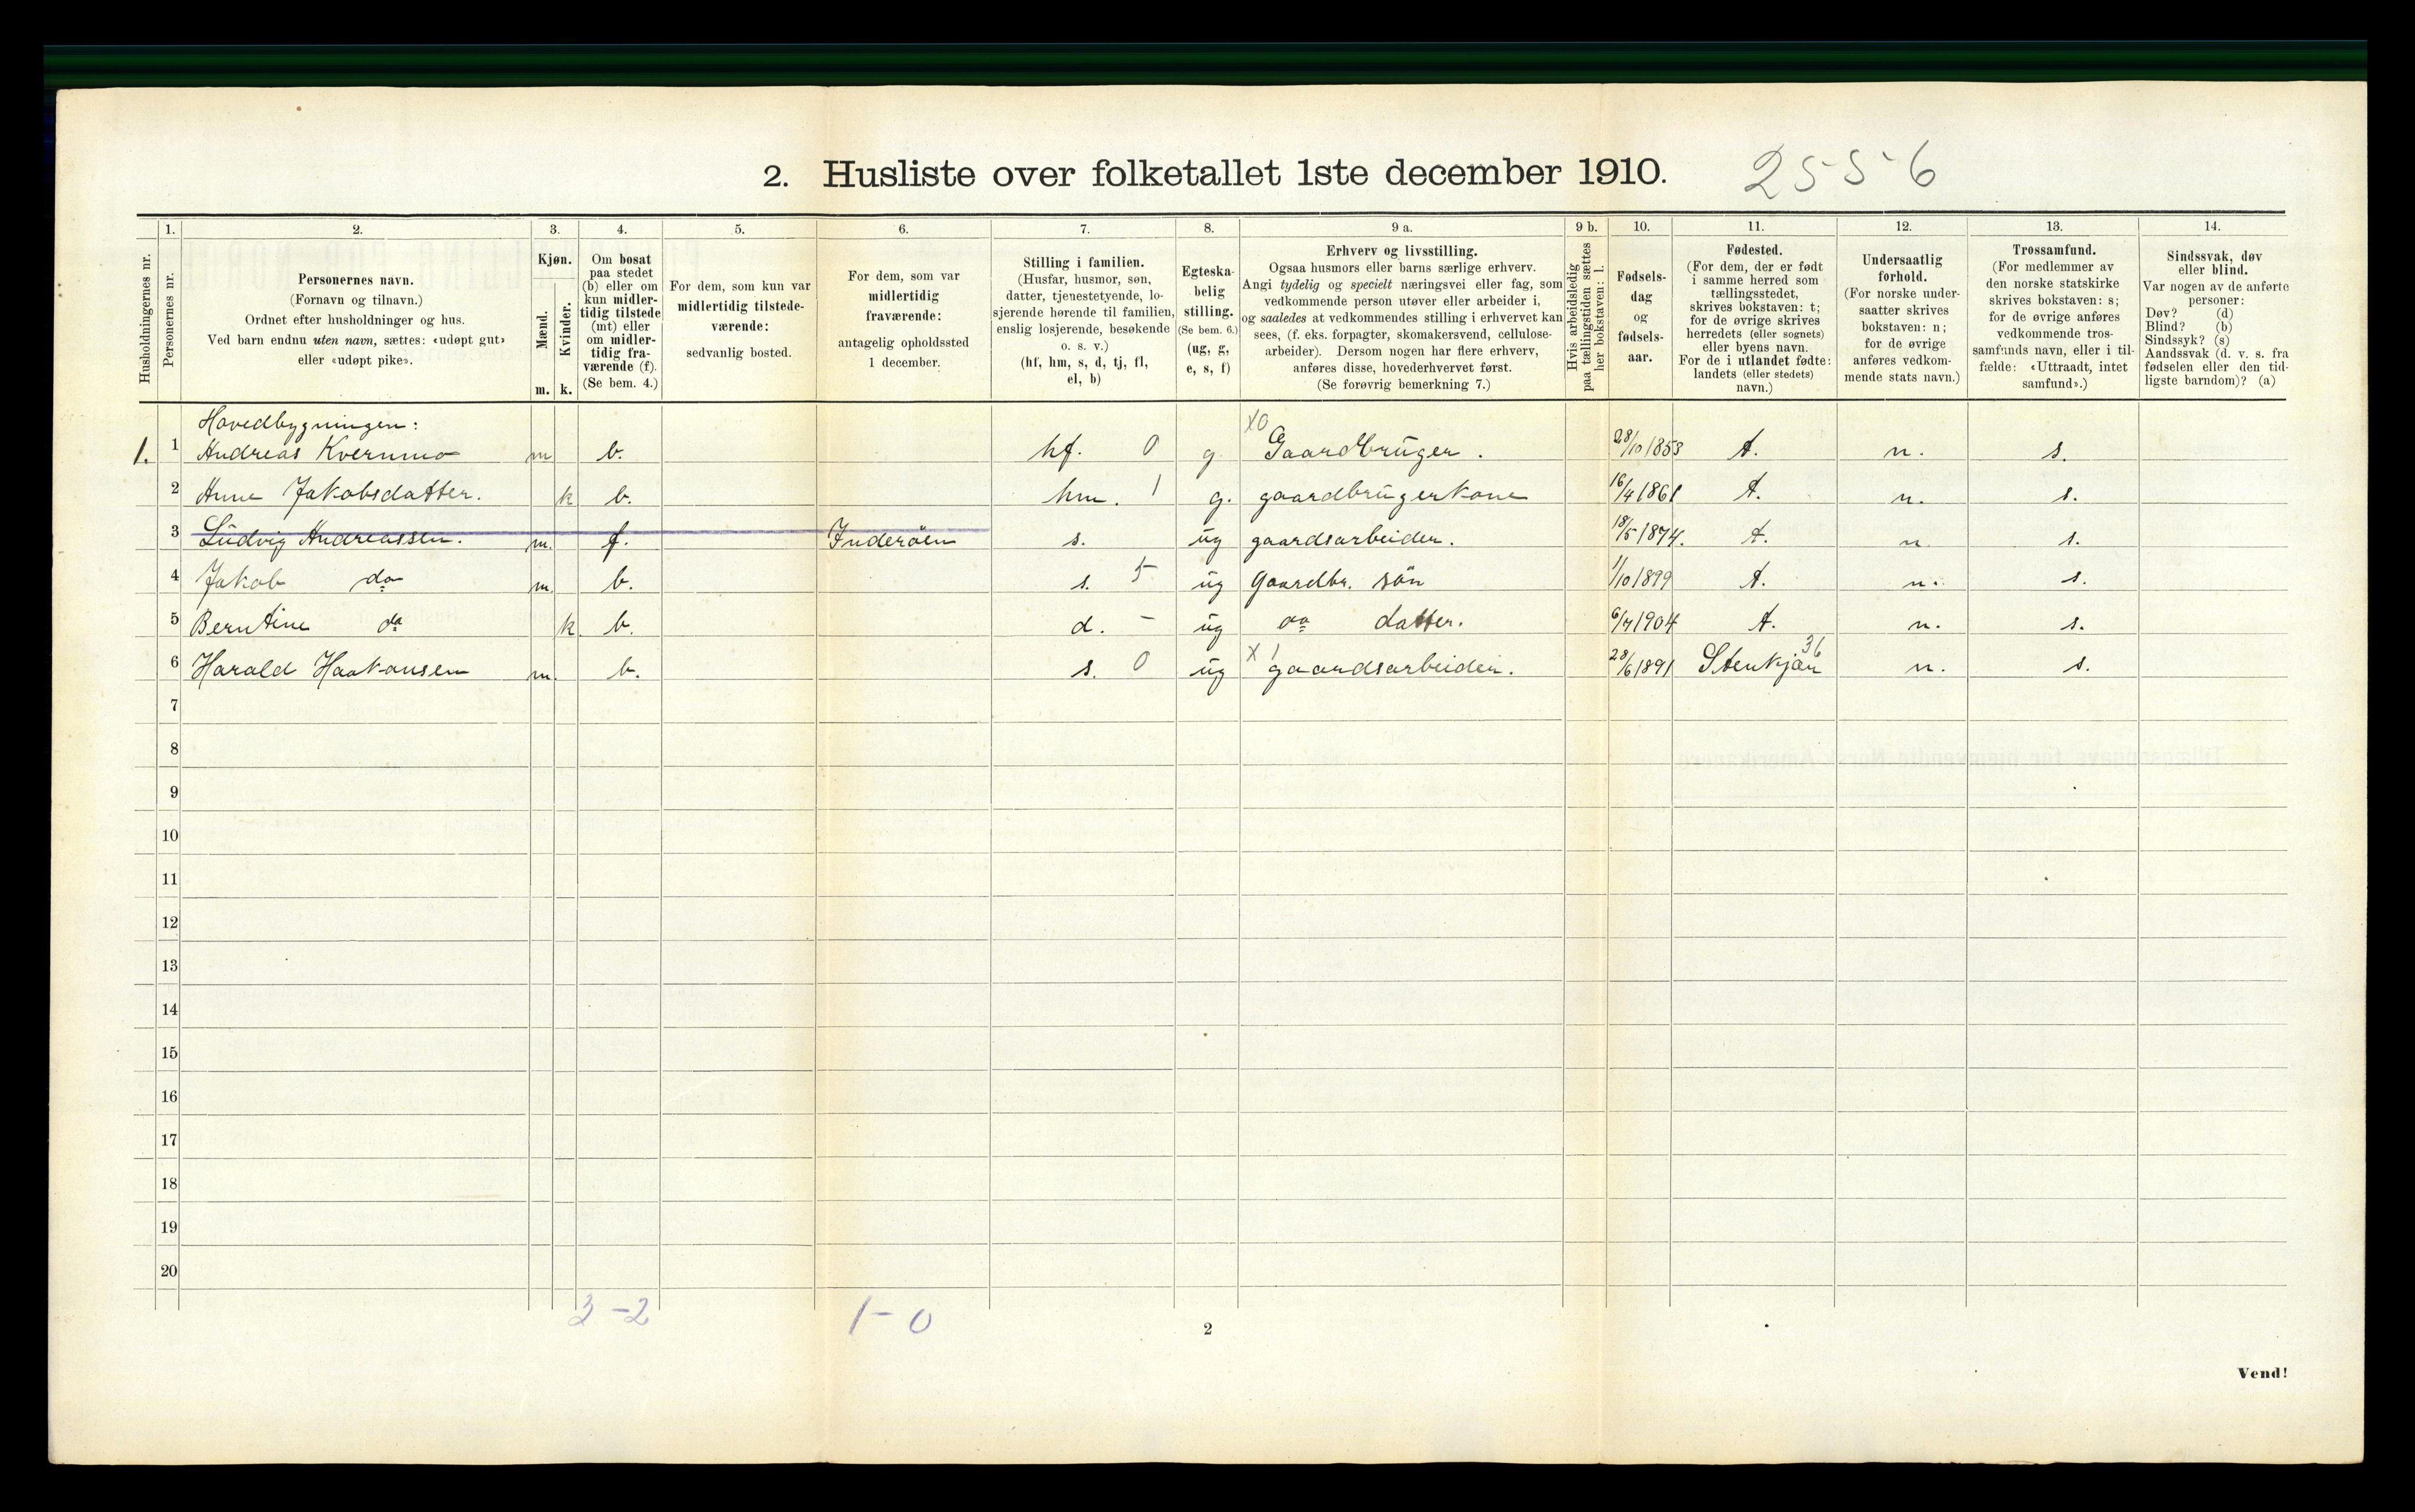 2. Husliste over folketallet 1ste december 1910. 2556
Husholdningernes nr.
1. Personernes nr.
2. Personernes navn. (Fornavn og tilnavn.) Ordnet efter husholdninger og hus. Ved barn endnu uten navn, sættes: «udøpt gut» eller «udøpt pike».
3. Kjøn. Mænd. m. Kvinder. k.
4. Om bosat paa stedet (b) eller om kun midlertidig tilstede (mt) eller om midlertidig fraværende (f). (Se bem. 4.)
5. For dem, som kun var midlertidig tilstedeværende: sedvanlig bosted.
6. For dem, som var midlertidig fraværende: antagelig opholdssted 1 december.
7. Stilling i familien. (Husfar, husmor, søn, datter, tjenestetyende, losjerende hørende til familien, enslig losjerende, besøkende o. s. v.) (hf, hm, s, d, tj, fl, el, b)
8. Egteskabelig stilling. (Se bem. 6.) (ug, g, e, s, f)
9 a. Erhverv og livsstilling. Ogsaa husmors eller barns særlige erhverv. Angi tydelig og specielt næringsvei eller fag, som vedkommende person utøver eller arbeider i, og saaledes at vedkommendes stilling i erhvervet kan sees, (f. eks. forpagter, skomakersvend, cellulosearbeider). Dersom nogen har flere erhverv, anføres disse, hovederhvervet først. (Se forøvrig bemerkning 7.)
9 b. Hvis arbeidsledig paa tællingstiden sættes her bokstaven: l.
10. Fødselsdag og fødselsaar.
11. Fødested. (For dem, der er født i samme herred som tællingsstedet, skrives bokstaven: t; for de øvrige skrives herredets (eller sognets) eller byens navn. For de i utlandet fødte: landets (eller stedets) navn.)
12. Undersaatlig forhold. (For norske undersaatter skrives bokstaven: n; for de øvrige anføres vedkommende stats navn.)
13. Trossamfund. (For medlemmer av den norske statskirke skrives bokstaven: s; for de øvrige anføres vedkommende trossamfunds navn, eller i tilfælde: «Uttraadt, intet samfund».)
14. Sindssvak, døv eller blind. Var nogen av de anførte personer: Døv? (d) Blind? (b) Sindssyk? (s) Aandssvak (d. v. s. fra fødselen eller den tidligste barndom)? (a)
Hovedbygningen:
1. 1 Andreas Kvernmo m b. hf. 0 g X0 Gaardbruger. 28/10 1853 t. n. s.
2 Anne Jakobsdatter. k b. hm. 1 g. gaardbrugerkone 16/4 1861 t. n. s.
3 Ludvig Andreassen. m. f. Inderöen s. ug gaardsarbeider. 18/5 1874. t. n s.
4 Jakob do m. b. s. 5 ug Gaardbr. sön 1/10 1899 t. n. s.
5 Berntine do k b. d. - ug do datter. 6/7 1904 t. n. s.
6 Harald Haakonsen m. b. s. 0 ug X 1 gaardsarbeider. 28/6 1891 Stenkjær 36 n. s.
7
8
9
10
11
12
13
14
15
16
17
18
19
20
3-2 1-0
2
Vend!